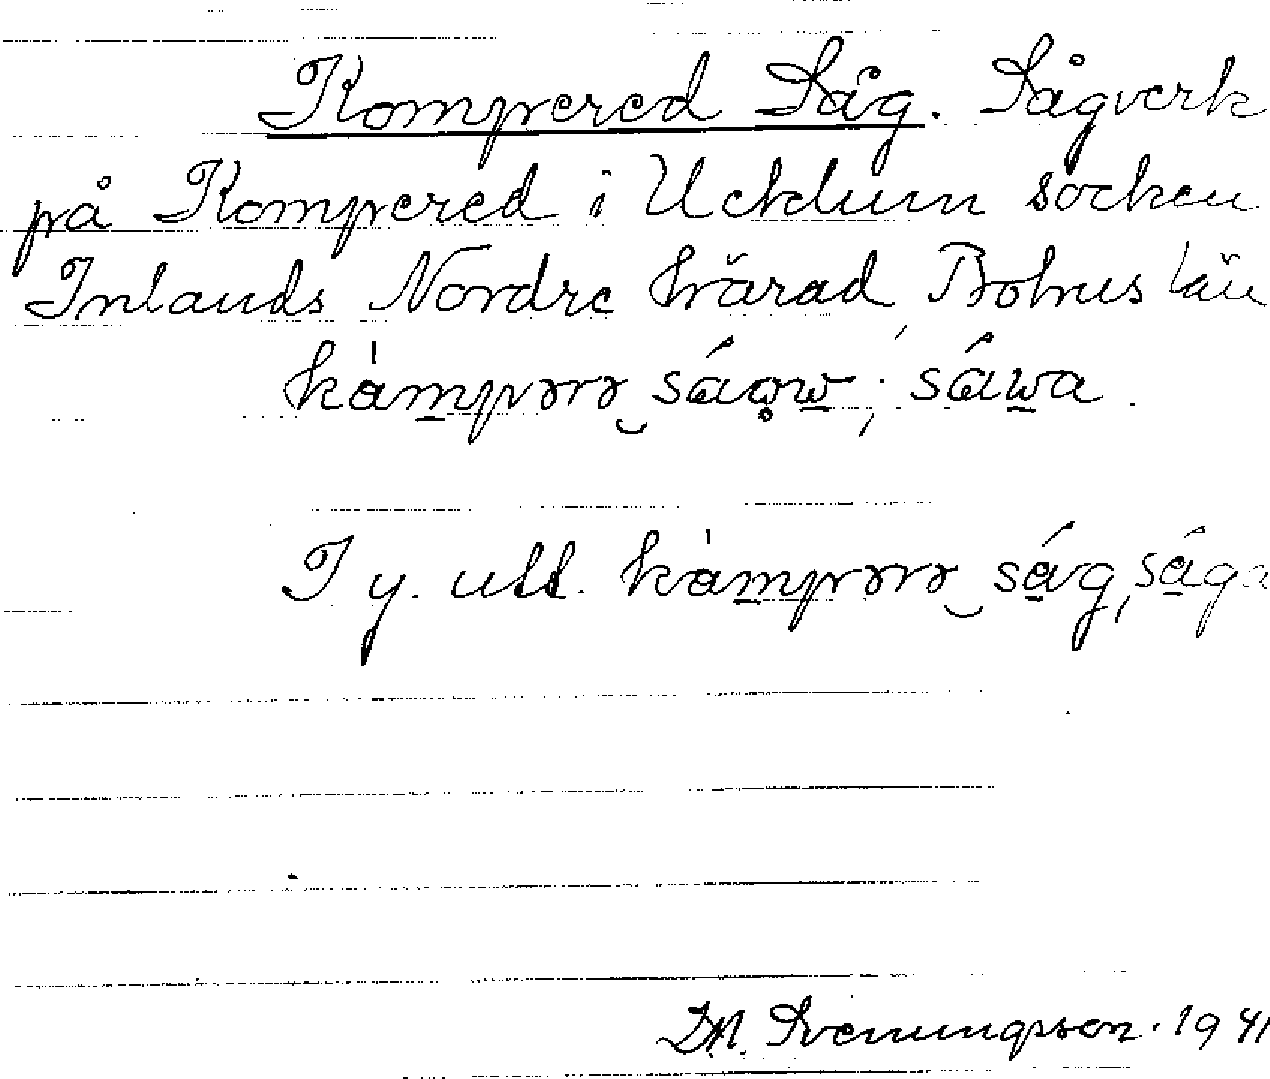 Kompered Såg. Sågverk
på Kompered i Ucklum socken
Inlands Nordre härad Bohus län
kàmpərə sáǫw; sáwa.
I y. utt. kàmpərə ság, sága
Svenungsson. 1941